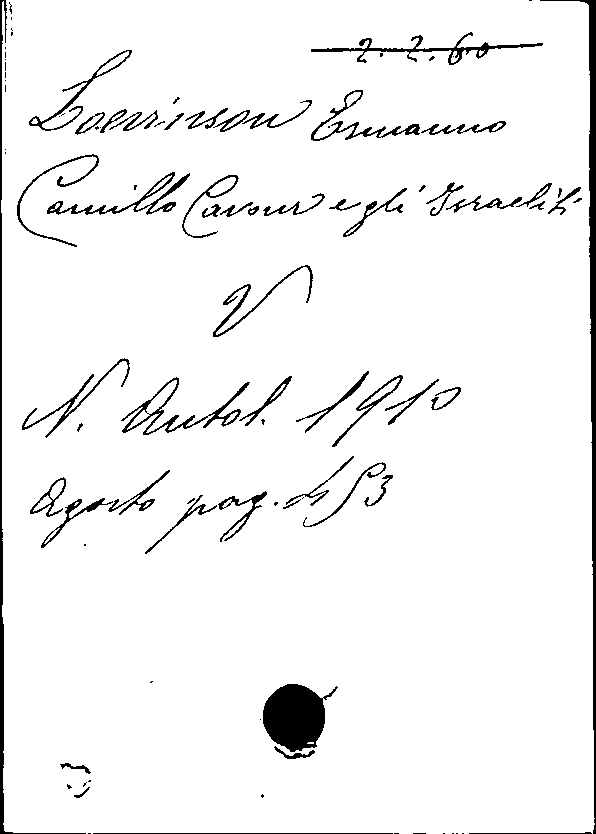 2. 2. 60
Loevinson Ermanno
Camillo Cavour e gli Israeliti
V
N. Antol. 1910
Agosto pag. 453